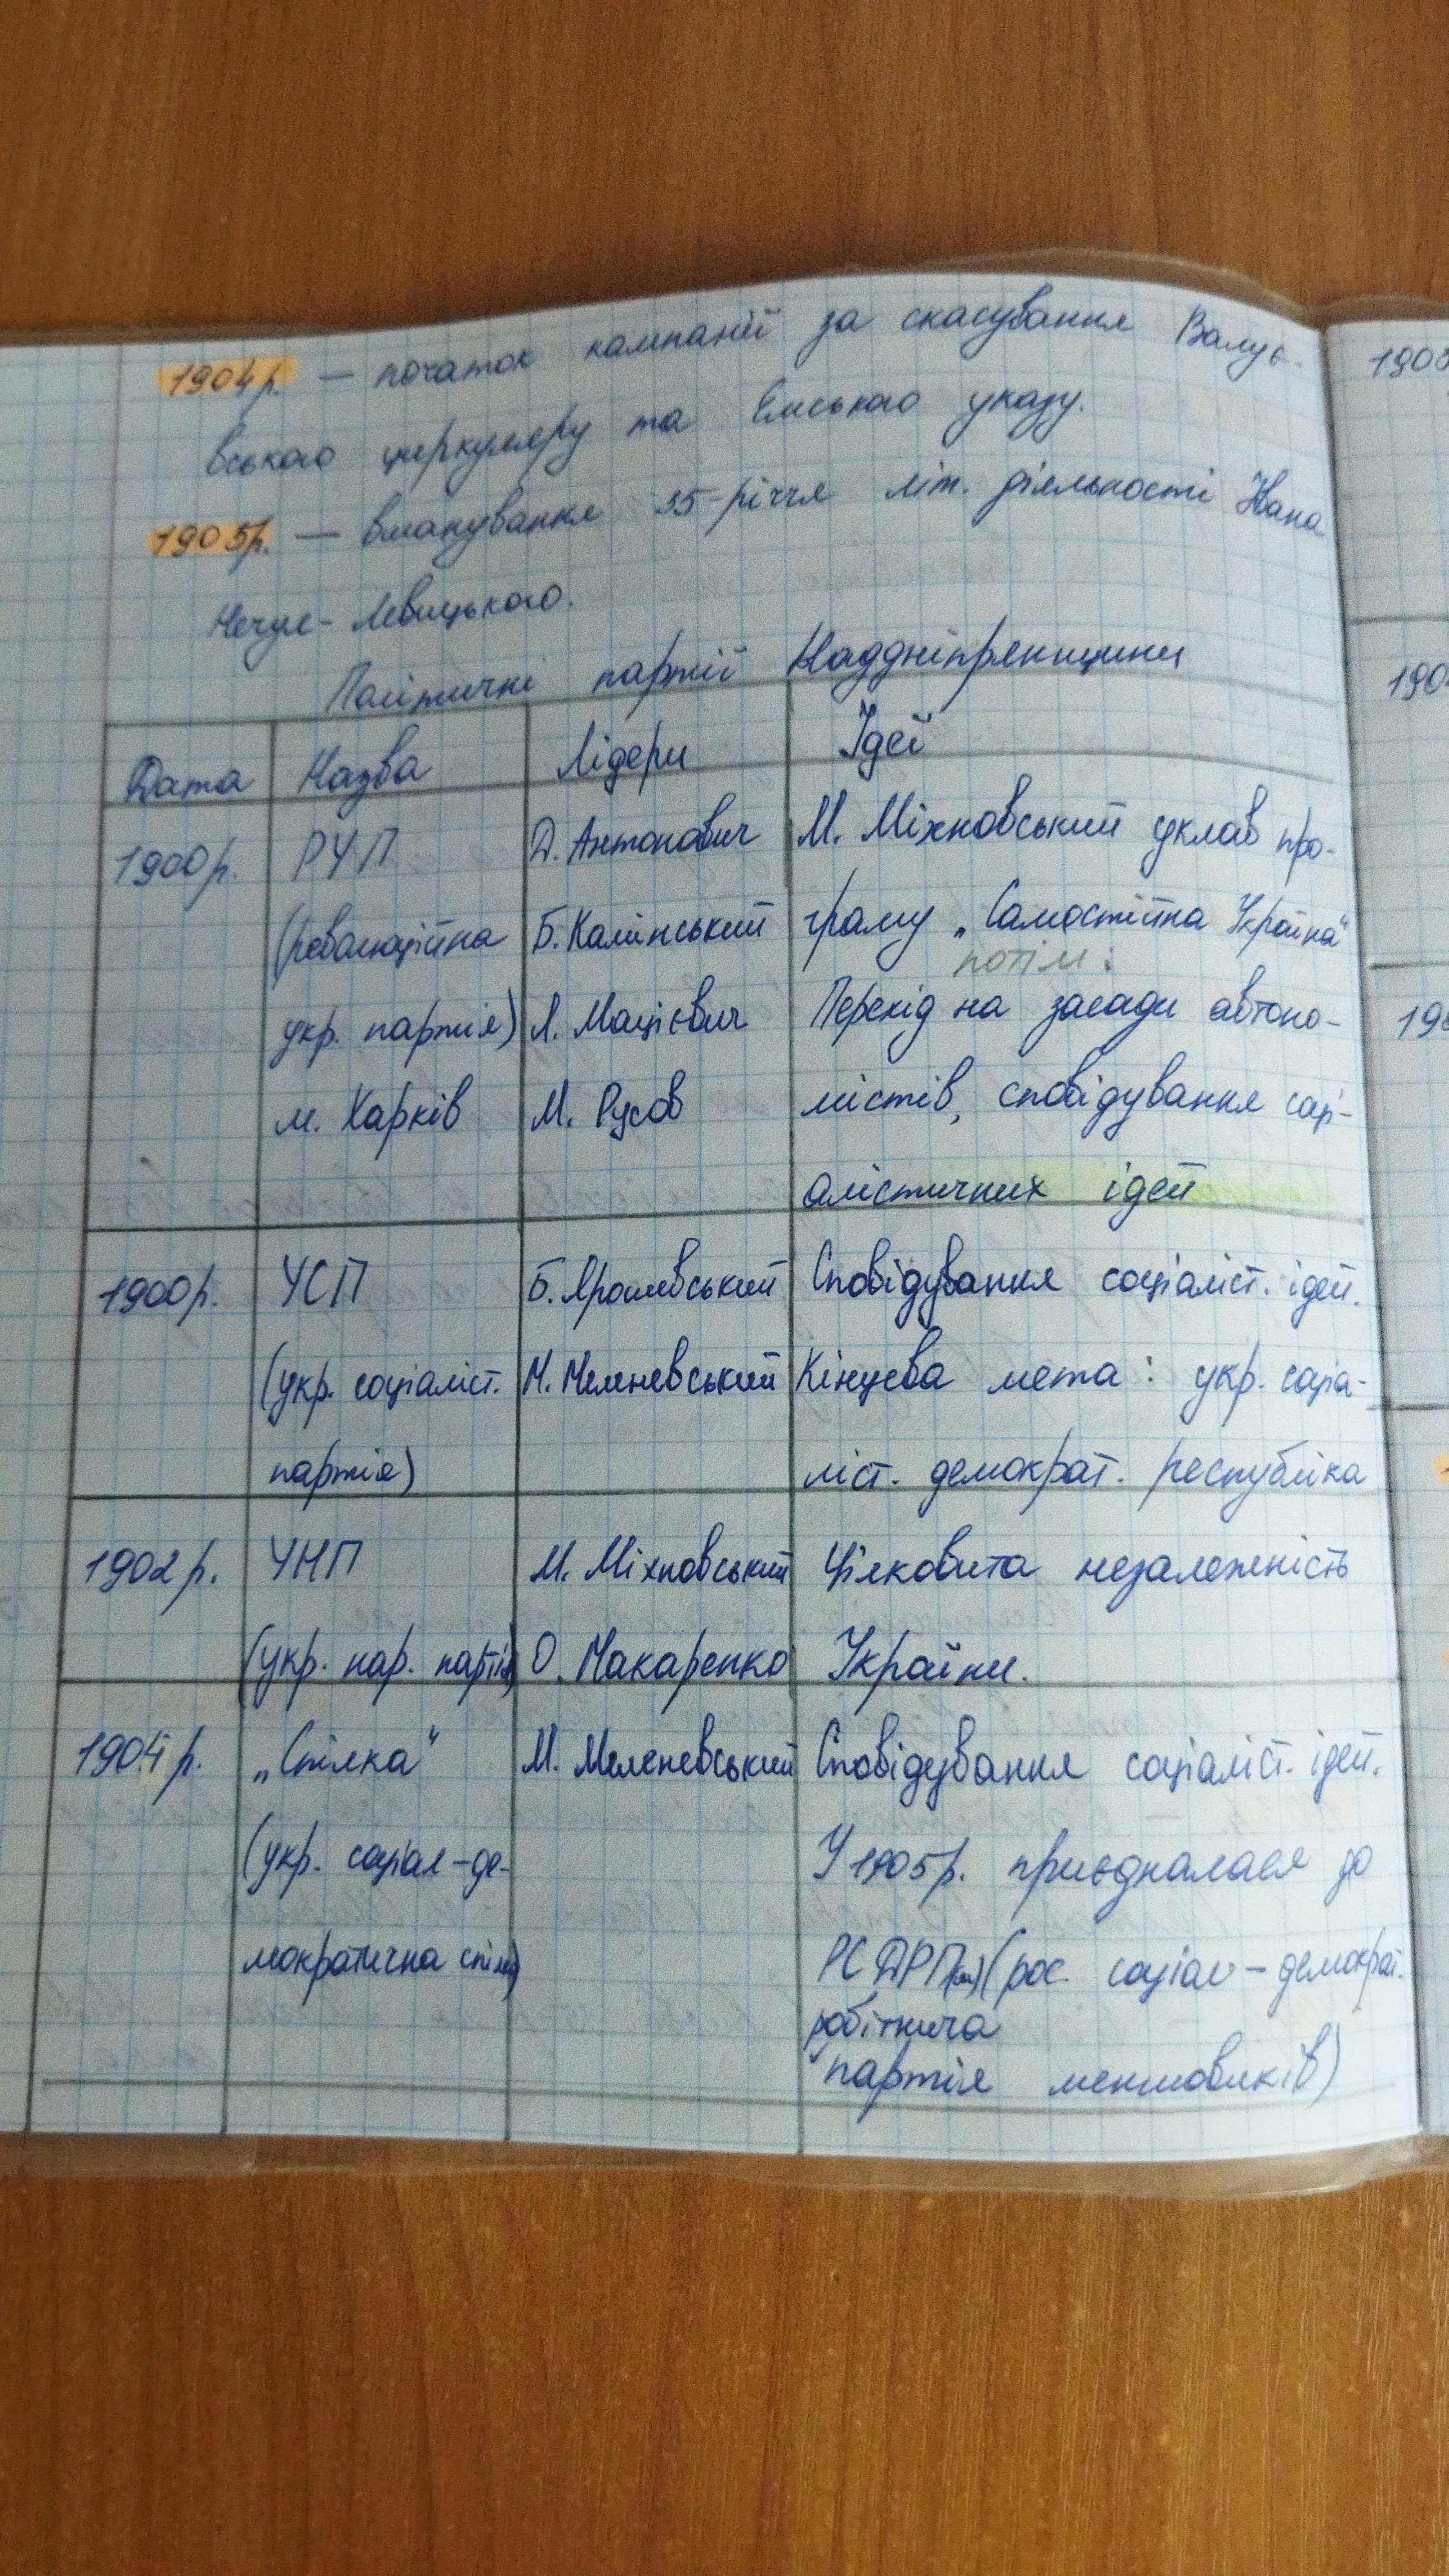 1904р. — початок кампанії за скасування Валує-
вського циркуляру та Емського указу.
1905р. — вшанування 35-річчя літ. діяльності Івана
Нечуя-Левицького.
Політичні партії Наддніпрянщини
Дата Назва Лідери Ідеї
1900р. РУП Д. Антонович М. Міхновський уклав про-
(революційна Б. Камінський граму „Самостійна Україна“
потім:
укр. партія) Л. Мацієвич Перехід на засади автоно-
м. Харків М. Русов містів, сповідування соці-
алістичних ідей
1900р. УСП Б. Ярошевський Сповідування соціаліст. ідей.
(укр. соціаліст. М. Меленевський Кінцева мета: укр. соціа-
партія) ліст. демократ. республіка
1902р. УНП М. Міхновський Цілковита незалежність
(укр. нар. партія) О. Макаренко України.
1904р. „Спілка“ М. Меленевський Сповідування соціаліст. ідей.
(укр. соціал-де- У 1905р. приєдналася до
мократична спілка) РСДРП(м)(рос. соціал-демократ.
робітнича
партія меншовиків)
1905
190
190